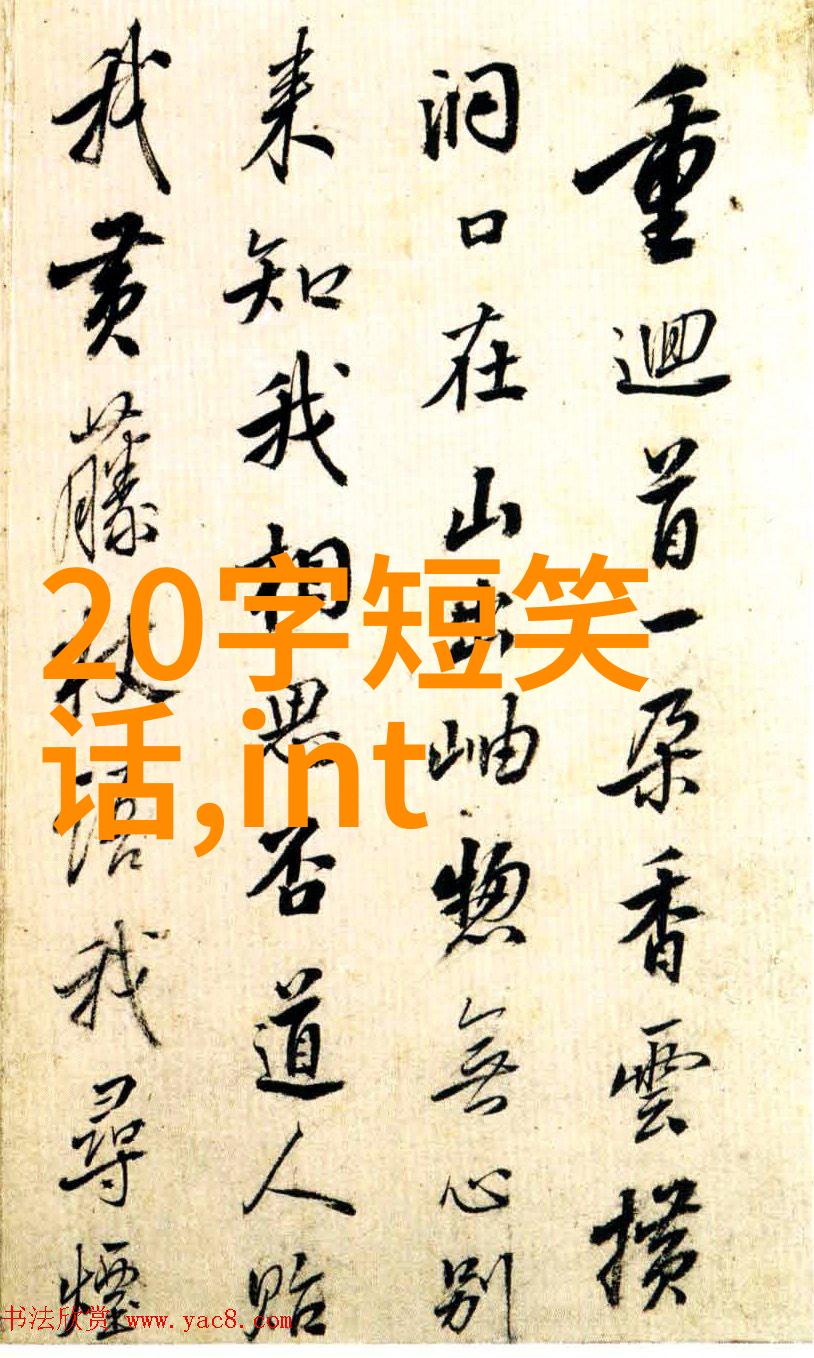 重迴首一朵香雲摜
洞口在山出岫惣無心別
来知我相思否道人貽
我黄藤杖語我尋煙
20字短笑
话,int
书法欣赏 www.yac8.com